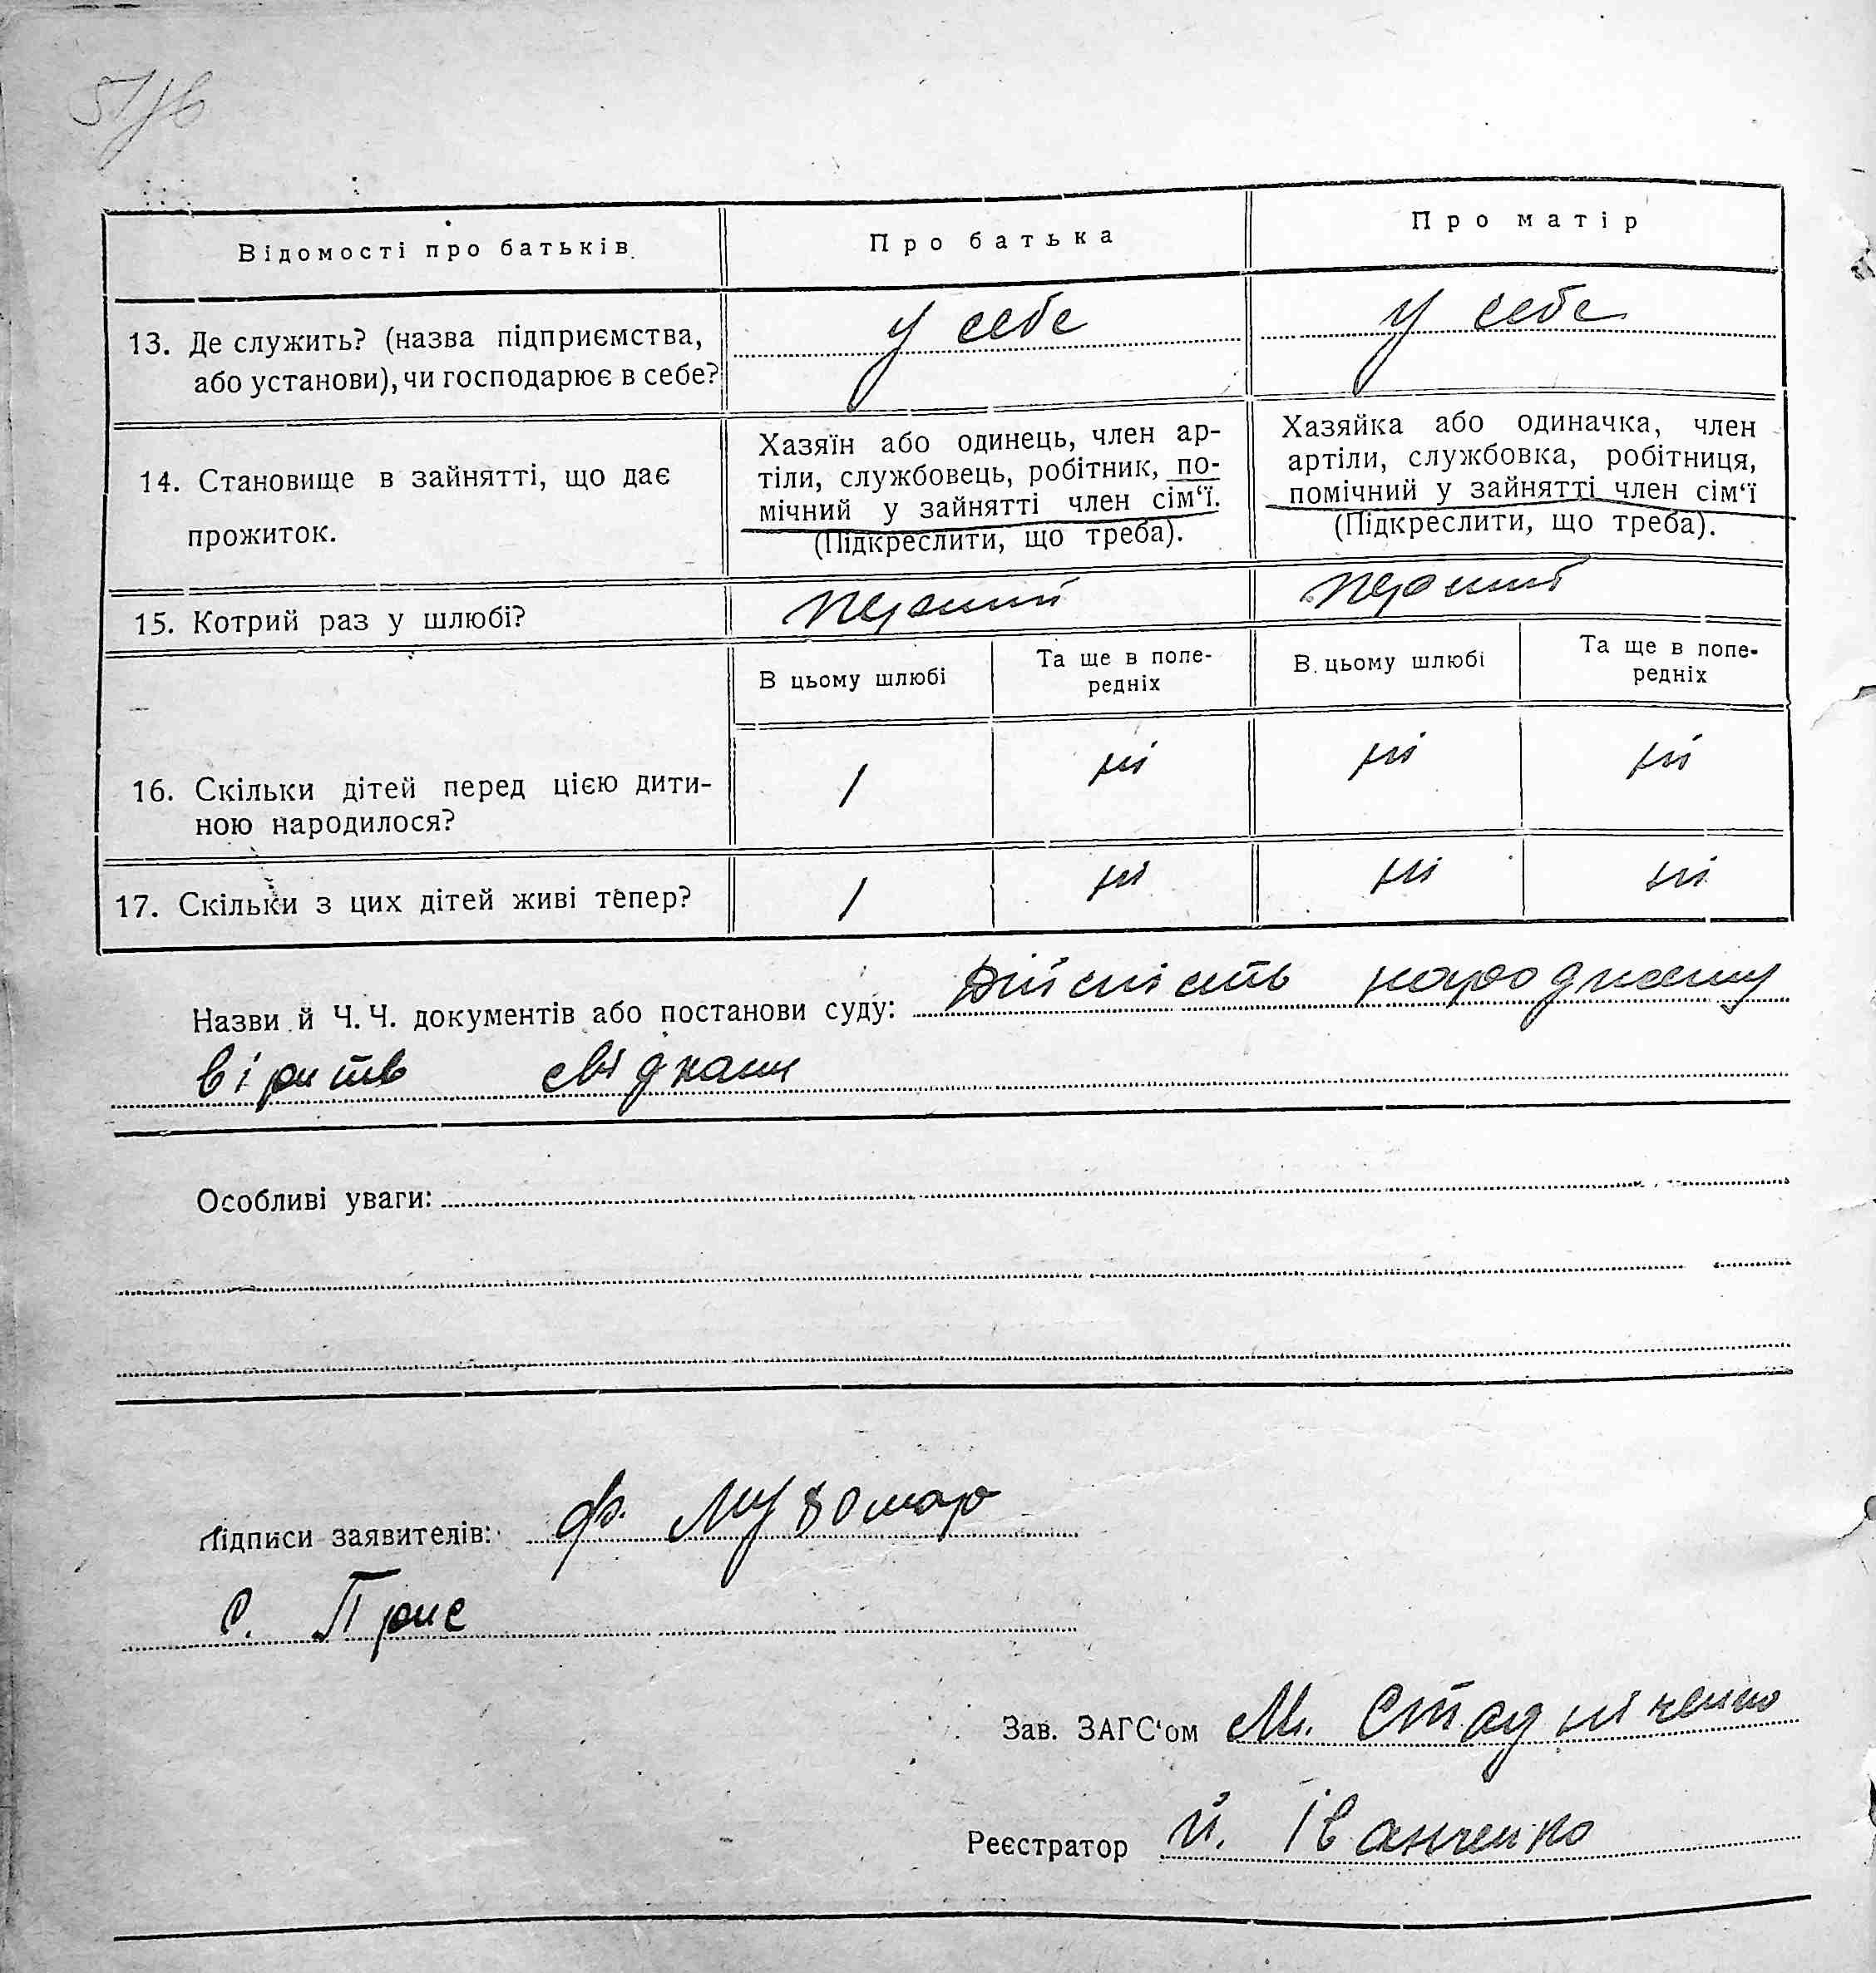 Відомості про батьків. Про батька Про матір
13. Де служить? (назва підприємства, або установи), чи господарює в себе?
у себе у себе
14. Становище в зайнятті, що дає прожиток.
Хазяїн або одинець, член ар-
тіли, службовець, робітник, по-
мічний у зайнятті член сім‘ї.
(Підкреслити, що треба).
Хазяйка або одиначка, член
артіли, службовка, робітниця,
помічний у зайнятті член сім‘ї
(Підкреслити, що треба).
15. Котрий раз у шлюбі? перший перший
В цьому шлюбі Та ще в попе-
редніх В цьому шлюбі Та ще в попе-
редніх
16. Скільки дітей перед цією дити-
ною народилося?
1 ні ні ні
17. Скільки з цих дітей живі тепер? 1 ні ні ні
Назви й Ч.Ч. документів або постанови суду: Дійсність
свідками
Особливі уваги:
Підписи заявителів: Ф.
С. Прис
Зав. ЗАГС‘ом М. Стадніченко
Реєстратор Й. Іванченко